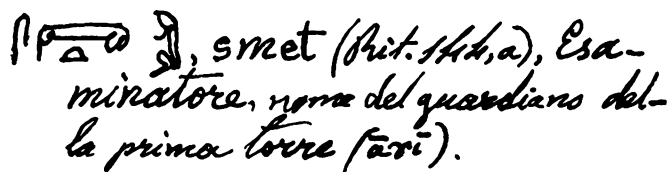 , smet (Rit. 144, a), Esa-
minatore, nome del guardiano del-
la prima torre (ārī).